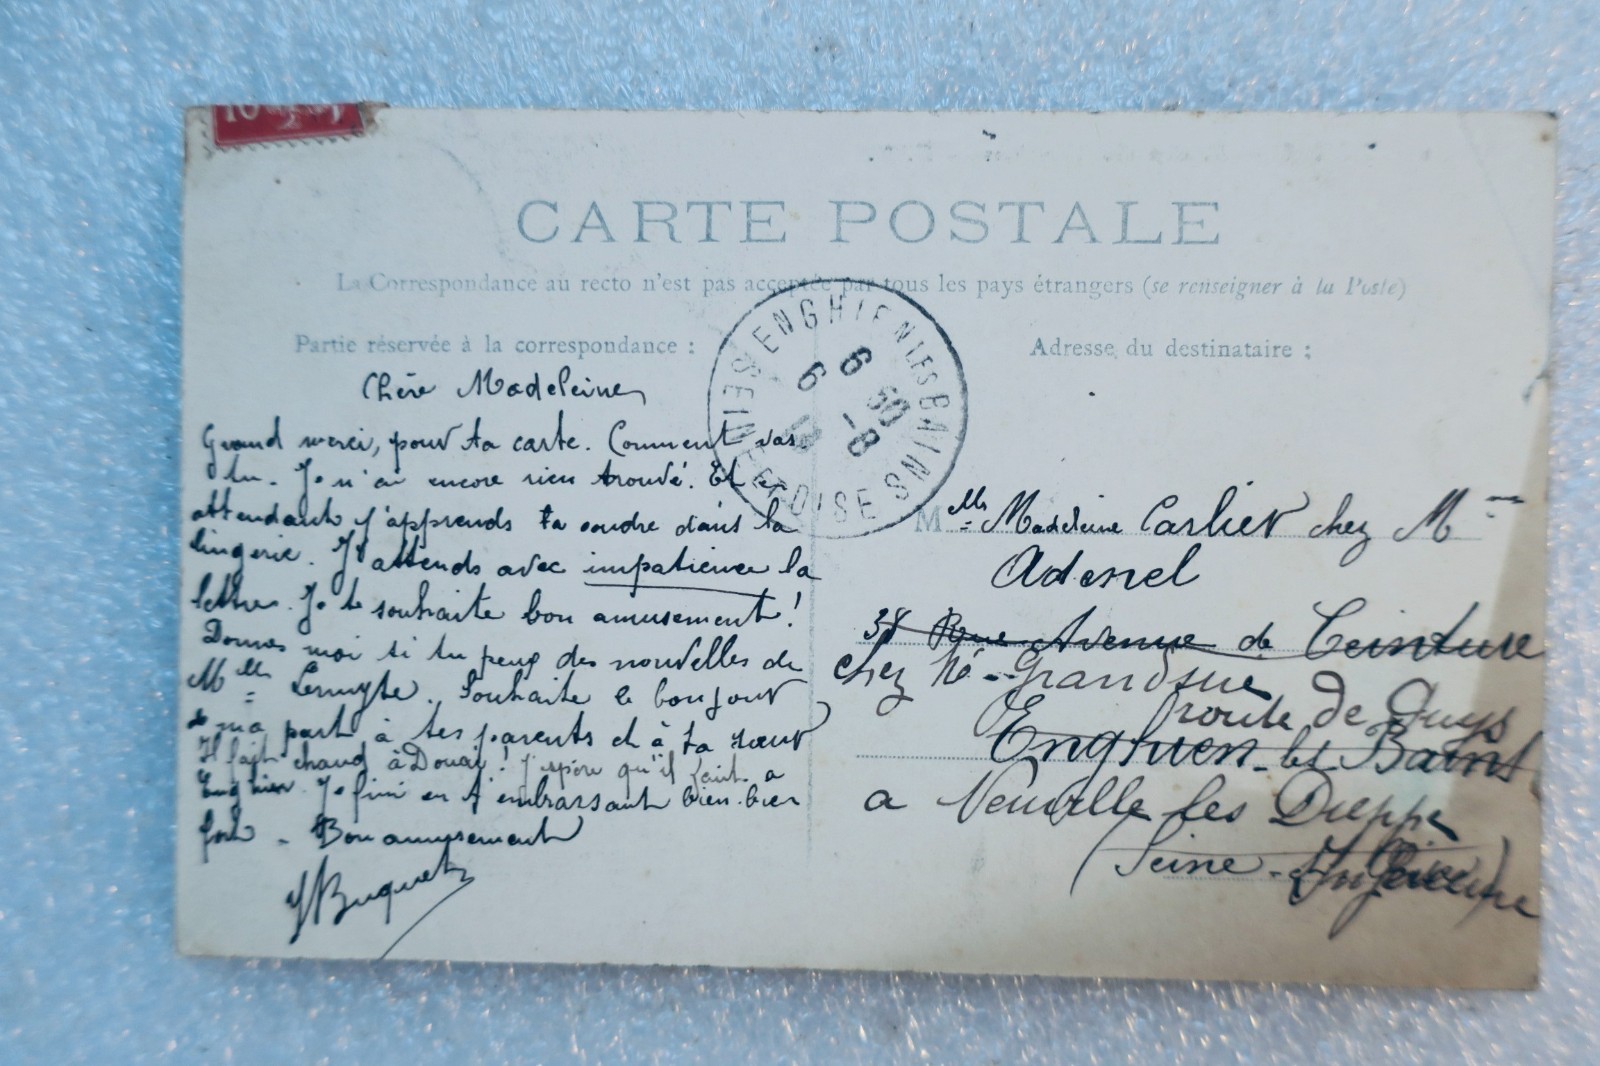 10
CARTE POSTALE
La Correspondance au recto n'est pas acceptée par tous les pays étrangers (se renseigner à la Poste)
Partie réservée à la correspondance :
Adresse du destinataire :
ENGHIEN LES BAINS
SEINE ET OISE
6 50
6 -8
Chère Madeleine,
Grand merci, pour ta carte. Comment vas
tu. Je n'ai encore rien trouvé. Et
attendant j'apprends ta coudre dans la
lingerie. J'attends avec impatience la
lettre. Je te souhaite bon amusement!
Donnes moi si tu peux des nouvelles de
Melle Lermyte. Souhaite le bonjour
de ma part à tes parents et à ta sœur
Il fait chaud à Douai! J'espère qu'il fait a
Enghien. Je fini en t'embrassant bien bien
fort - Bon amusement
Buquet
Melle Madeleine Carlier chez Mme
Adenel
38 Rue Avenue de Ceinture
chez Mé - Grandsue
route de Guys
Enghien-les Bains
a Neuville les Dieppe
(Seine - Inférieure)